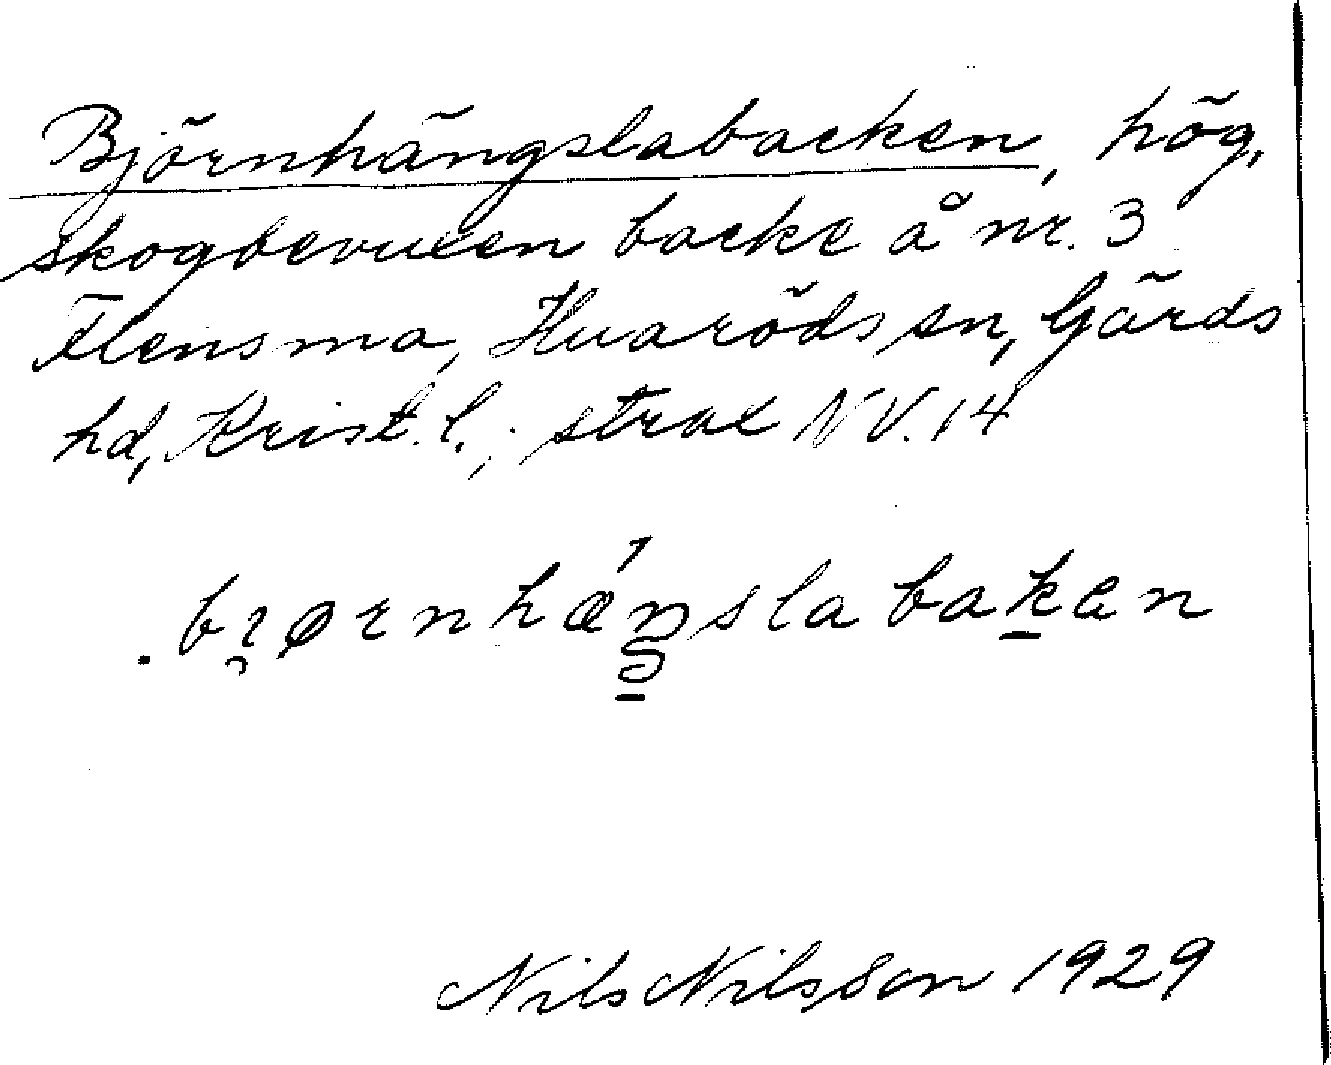 Björnhängslabacken, hög,
skogbevuxen backe å nr. 3
Flensma, Huaröds sn, Gärds
hd, Krist. l.; strax NV. 14
bɩ̯ørnhǽŋslabak̠en
Nils Nilsson 1929